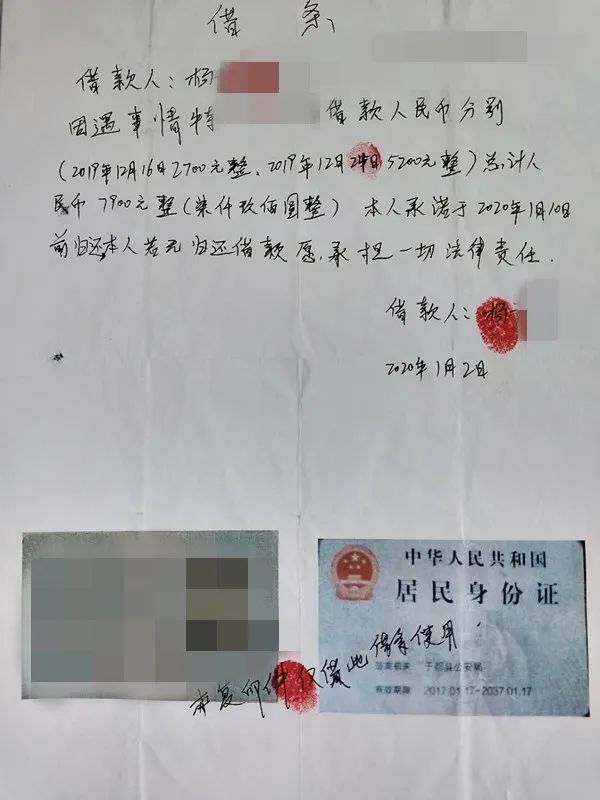 借条
借款人：杨
因遇事情特 借款人民币分别
（2019年12月16日2700元整、2019年12月24日5200元整）总计人
民币7900元整（柒仟玖佰圆整） 本人承诺于2020年1月10日
前归还本人若无归还借款愿承担一切法律责任.
借款人：杨
2020年1月2日
中华人民共和国
居民身份证
签发机关 于都县公安局
有效期限 2017.01.17-2037.01.17
本复印件仅供此借条使用.